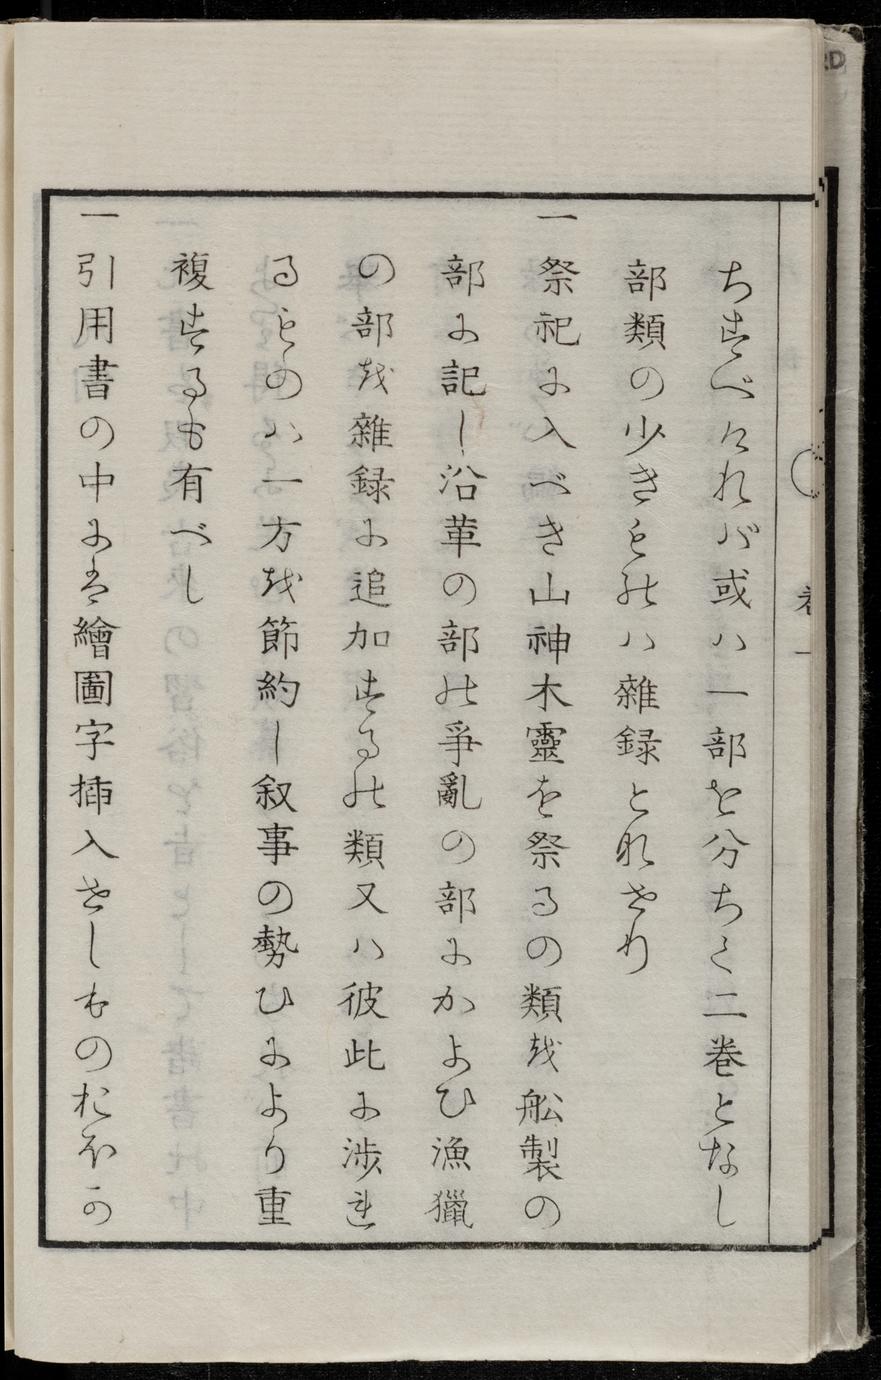 ちすべけれバ或ハ一部を分ちて二巻となし
部類の少きものハ雜録となせり
一祭祀に入べき山神木靈を祭るの類を舩製の
部に記し沿革の部の爭亂の部にかよひ漁獵
の部を雜録に追加するの類又ハ彼此に渉れ
るものハ一方を節約し叙事の勢ひにより重
複するも有べし
一引用書の中には繪圖字挿入せしものおほか
巻一